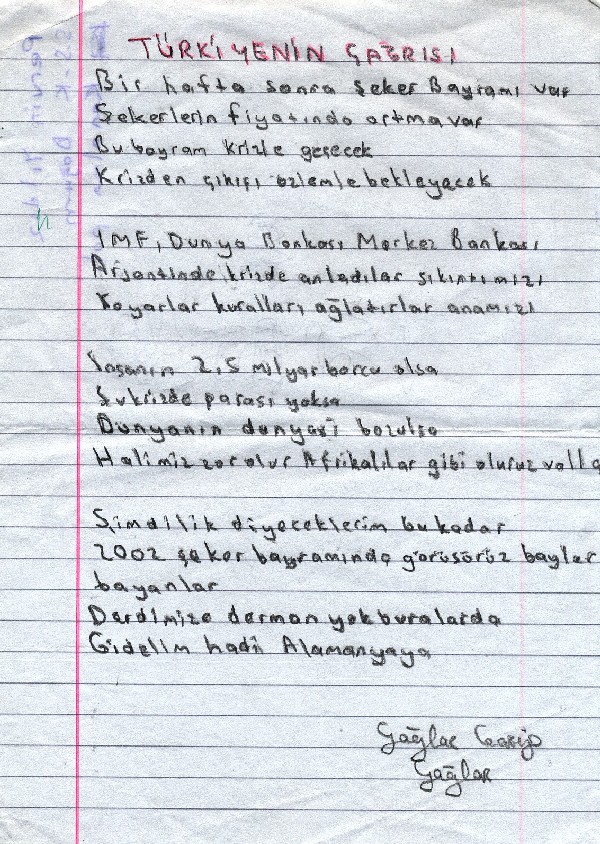 TÜRKİYENİN ÇAĞRISI
Bir hafta sonra Şeker Bayramı var
Şekerlerin fiyatında artma var
Bu bayram krizle geçecek
Krizden çıkışı özlemle bekleyecek
IMF, Dunya Bankası Merkez Bankası
Arjantinde krizde anladılar sıkıntımızı
Koyarlar kuralları ağlatırlar anamızı
İnsanın 2,5 milyar borcu olsa
Şu krizde parası yoksa
Dünyanın dunyası bozulsa
Halimiz zor olur Afrikalılar gibi oluruz valla
Şimdilik diyeceklerim bu kadar
2002 şeker bayramında görüşürüz baylar
bayanlar
Derdimize derman yok buralarda
Gidelim hadi Alamanyaya
Çağlar
Çağlar